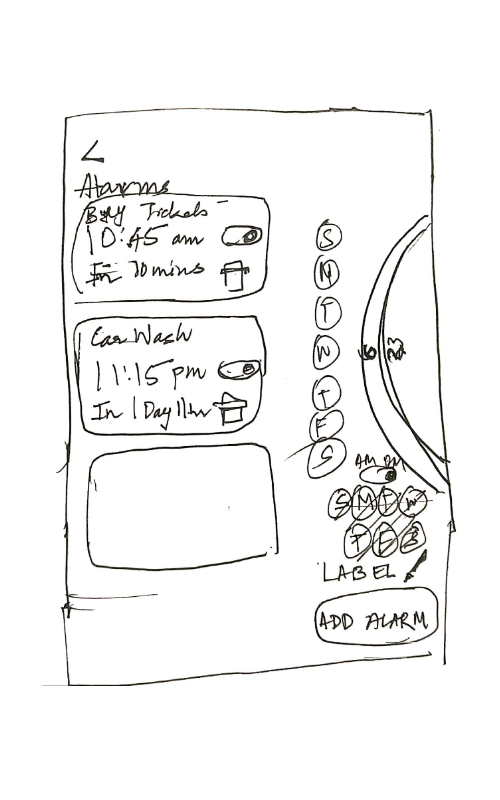 <
Alarms
Buy Tickets
10:45 am
In 10 mins
Car Wash
11:15 pm
In 1 Day 11hr
S
M
T
W
T
F
S
6
23
AM PM
S M T W
T F S
LABEL
ADD ALARM